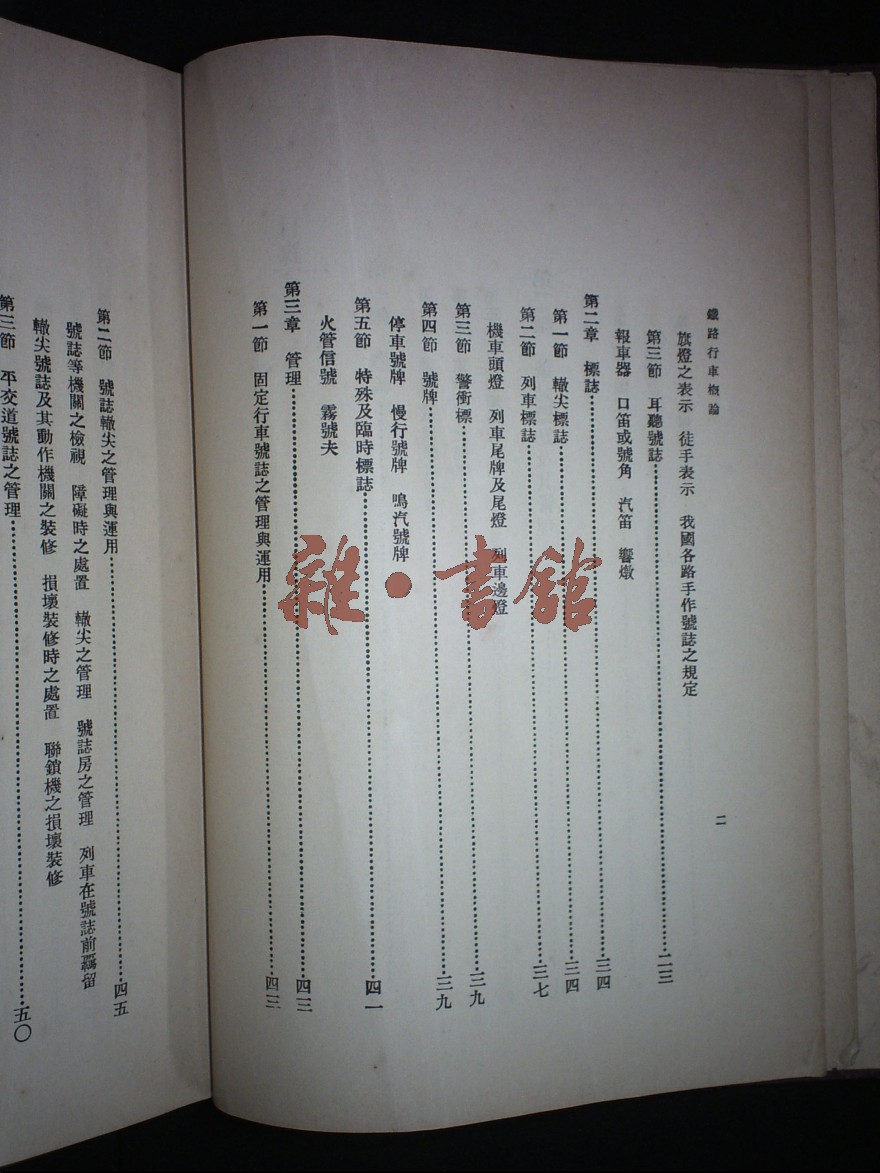 鐵路行車概論
二
旗燈之表示 徒手表示 我國各路手作號誌之規定
第三節 耳聽號誌……二三
報車器 口笛或號角 汽笛 響墩
第二章 標誌……三四
第一節 轍尖標誌……三四
第二節 列車標誌……三七
機車頭燈 列車尾牌及尾燈 列車邊證
第三節 警衝標……三九
第四節 號牌……三九
停車號牌 慢行號牌 鳴汽號牌
第五節 特殊及臨時標誌……四一
火管信號 霧號夫
第三章 管理……四三
第一節 固定行車號誌之管理與運用……四三
第二節 號誌轍尖之管理與運用……四五
號誌等機關之檢視 障礙時之處置 轍尖之管理 號誌房之管理 列車在號誌前羈留
轍尖號誌及其動作機關之裝修 損壞裝修時之處置 聯鎖機之損壞裝修
第三節 平交道號誌之管理……五〇
雜·書館